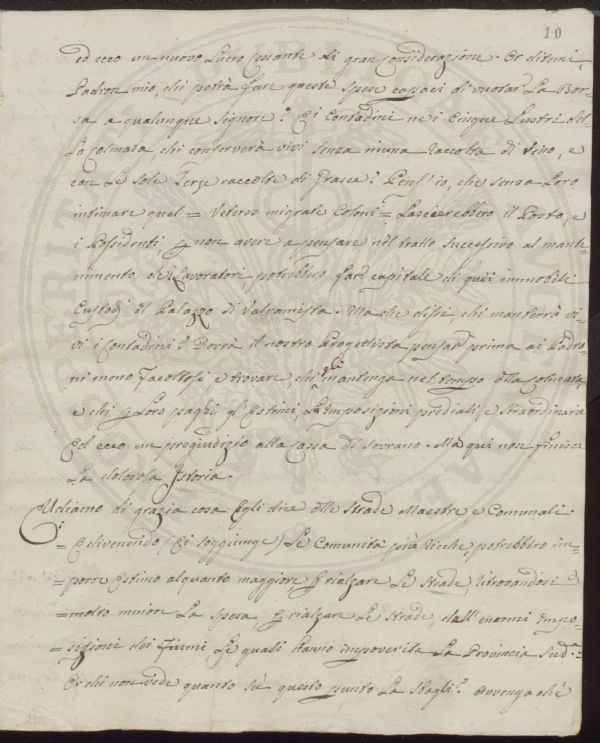 10
ed ecco un nuovo Lucro Cessante di gran Considerazione. Or ditemi,
Padron mio, chi potrà fare queste spese capaci di vuotar La Bor-
sa a qualunque Signore? E i Contadini ne i Cinque Lustri del-
La Colmada, chi conserverà vivi senza niuna raccolta di Vino, e
con Le sole Terze raccolte di Grasce? Pens'io, che senza Loro
intimare quel = Veteres migrate Coloni = Lascierebbero il Posto, e
i Possidenti, p non avere a pensare nel tratto successivo al mante-
nimento de' Lavoratori, potrebbero far capitale di quei immobili
Custodi del Palazzo di Valramista. Ma che dissi, chi manterrà vi-
vi i Contadini? Dovrà il nostro Progettista pensar prima ai Padro-
ni meno facoltosi e trovare, chi gli mantenga nel tempo della Colmata,
e chi p Loro paghi gl'Estimi, Le Imposizioni prediali, e straordinarie
Ed ecco un pregiudizio alla Cassa del Sovrano. Ma qui non finisce
La dolorosa Istoria.
Udiamo di grazia cosa Egli dice delle Strade Maestre, e Comunali.
= E divenendo (Ei soggiunge) Le Comunità più ricche, potrebbero im-
= porre Estimo alquanto maggiore p rialzare Le Strade, ritrovandosi
= molto minore La spesa p rialzare Le Strade, dall'enormi Impo-
= sizioni dei Fiumi Le quali hanno impoverita La Provincia sud.a =
Or chi non vede quanto in questo punto La sbagli? Avvenga chè